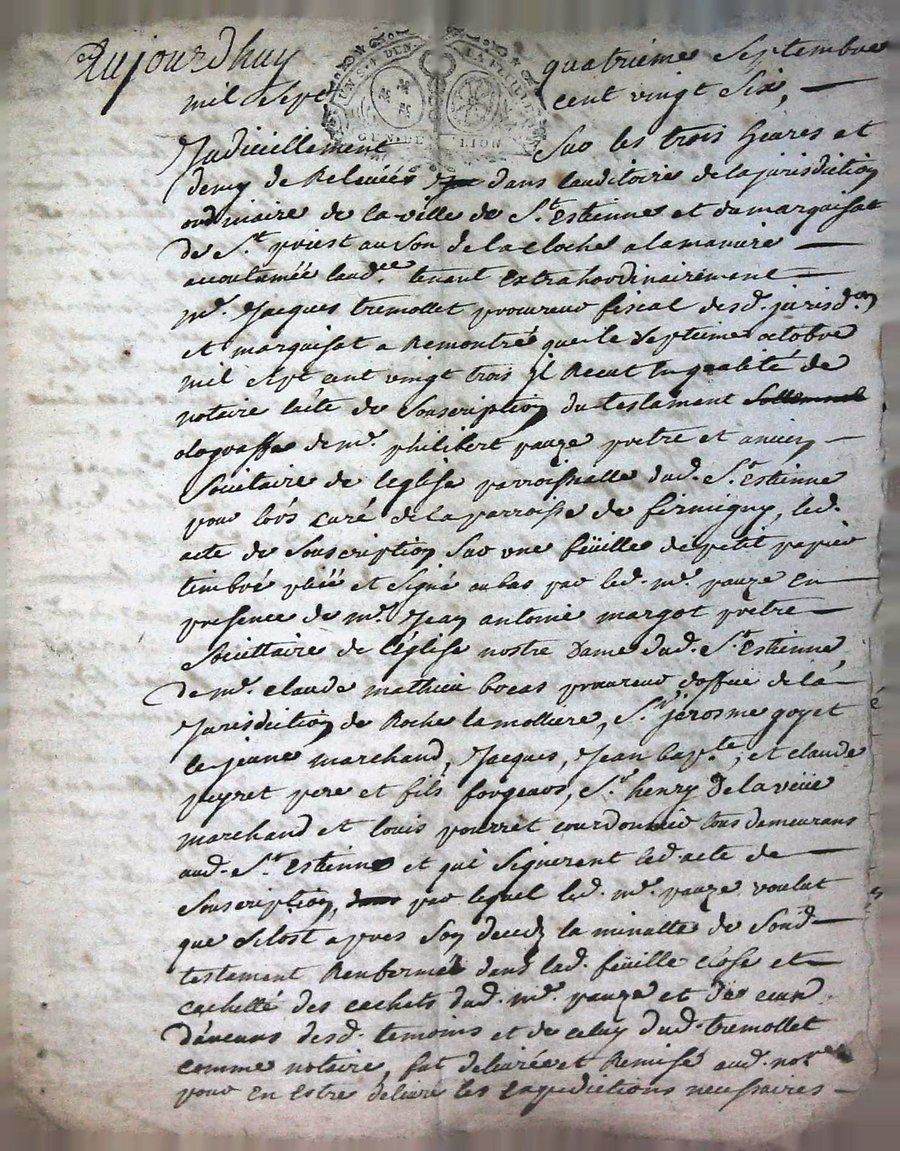 Aujourdhuy quatrième Septembre
mil Sept cent vingt Six,
UN S. 4 DEN. LA FEUILLE
GEN DE LION
Judiciellement Sur les trois heures et
demy de Relevées dans lauditoire de la jurisdiction
ordinaire de la ville de St. Estienne et du marquisat
de St. priest au Son de la cloche a la maniere
accoutumée laudce. tenant extrahordinairement
mr. Jacques tremollet procureur fiscal desd. jurisdon
et marquisat a Remontré que le Septieme octobre
mil Sept cent vingt trois Jl Recut en qualité de
notaire lacte de Souscription du testament
olograffe de mr. philibert pauze prêtre et ancien
Sociétaire de leglise parroissialle dud. St. Estienne
pour lors curé de la parroisse de firmigny, led.
acte de Souscription Sur une feüille de petit papier
timbré pliée et Signé au bas par led. mr. pauze en
presence de mr. Jean antoine margot prêtre
Sociéttaire de l'église nostre Dame dud. St. Estienne
de mr. claude mathieu bocas procureur doffice de la
Jurisdiction de Roche la molliere, Sr. jérosme goyet
le jeune marchand, Jacques, Jean bapte, et claude
peyret pere et fils forgeurs, Sr. henry de la veüe
marchand et louis pourret courdonnier tous demeurans
aud. St. Estienne et qui Signerent led. acte de
Souscription, par lequel led. mr. pauze voulut
que Silost apres Son deced la minutte de Sond.
testament Renfermé dans lad. feüille close et
cachellé des cachets dud. mr. pauze et de ceux
d'aucuns desd. temoins et de celuy dud. tremollet
comme notaire, fut delivrée et Remise aud. notre
pour en Estre delivré les expedictions necessaires